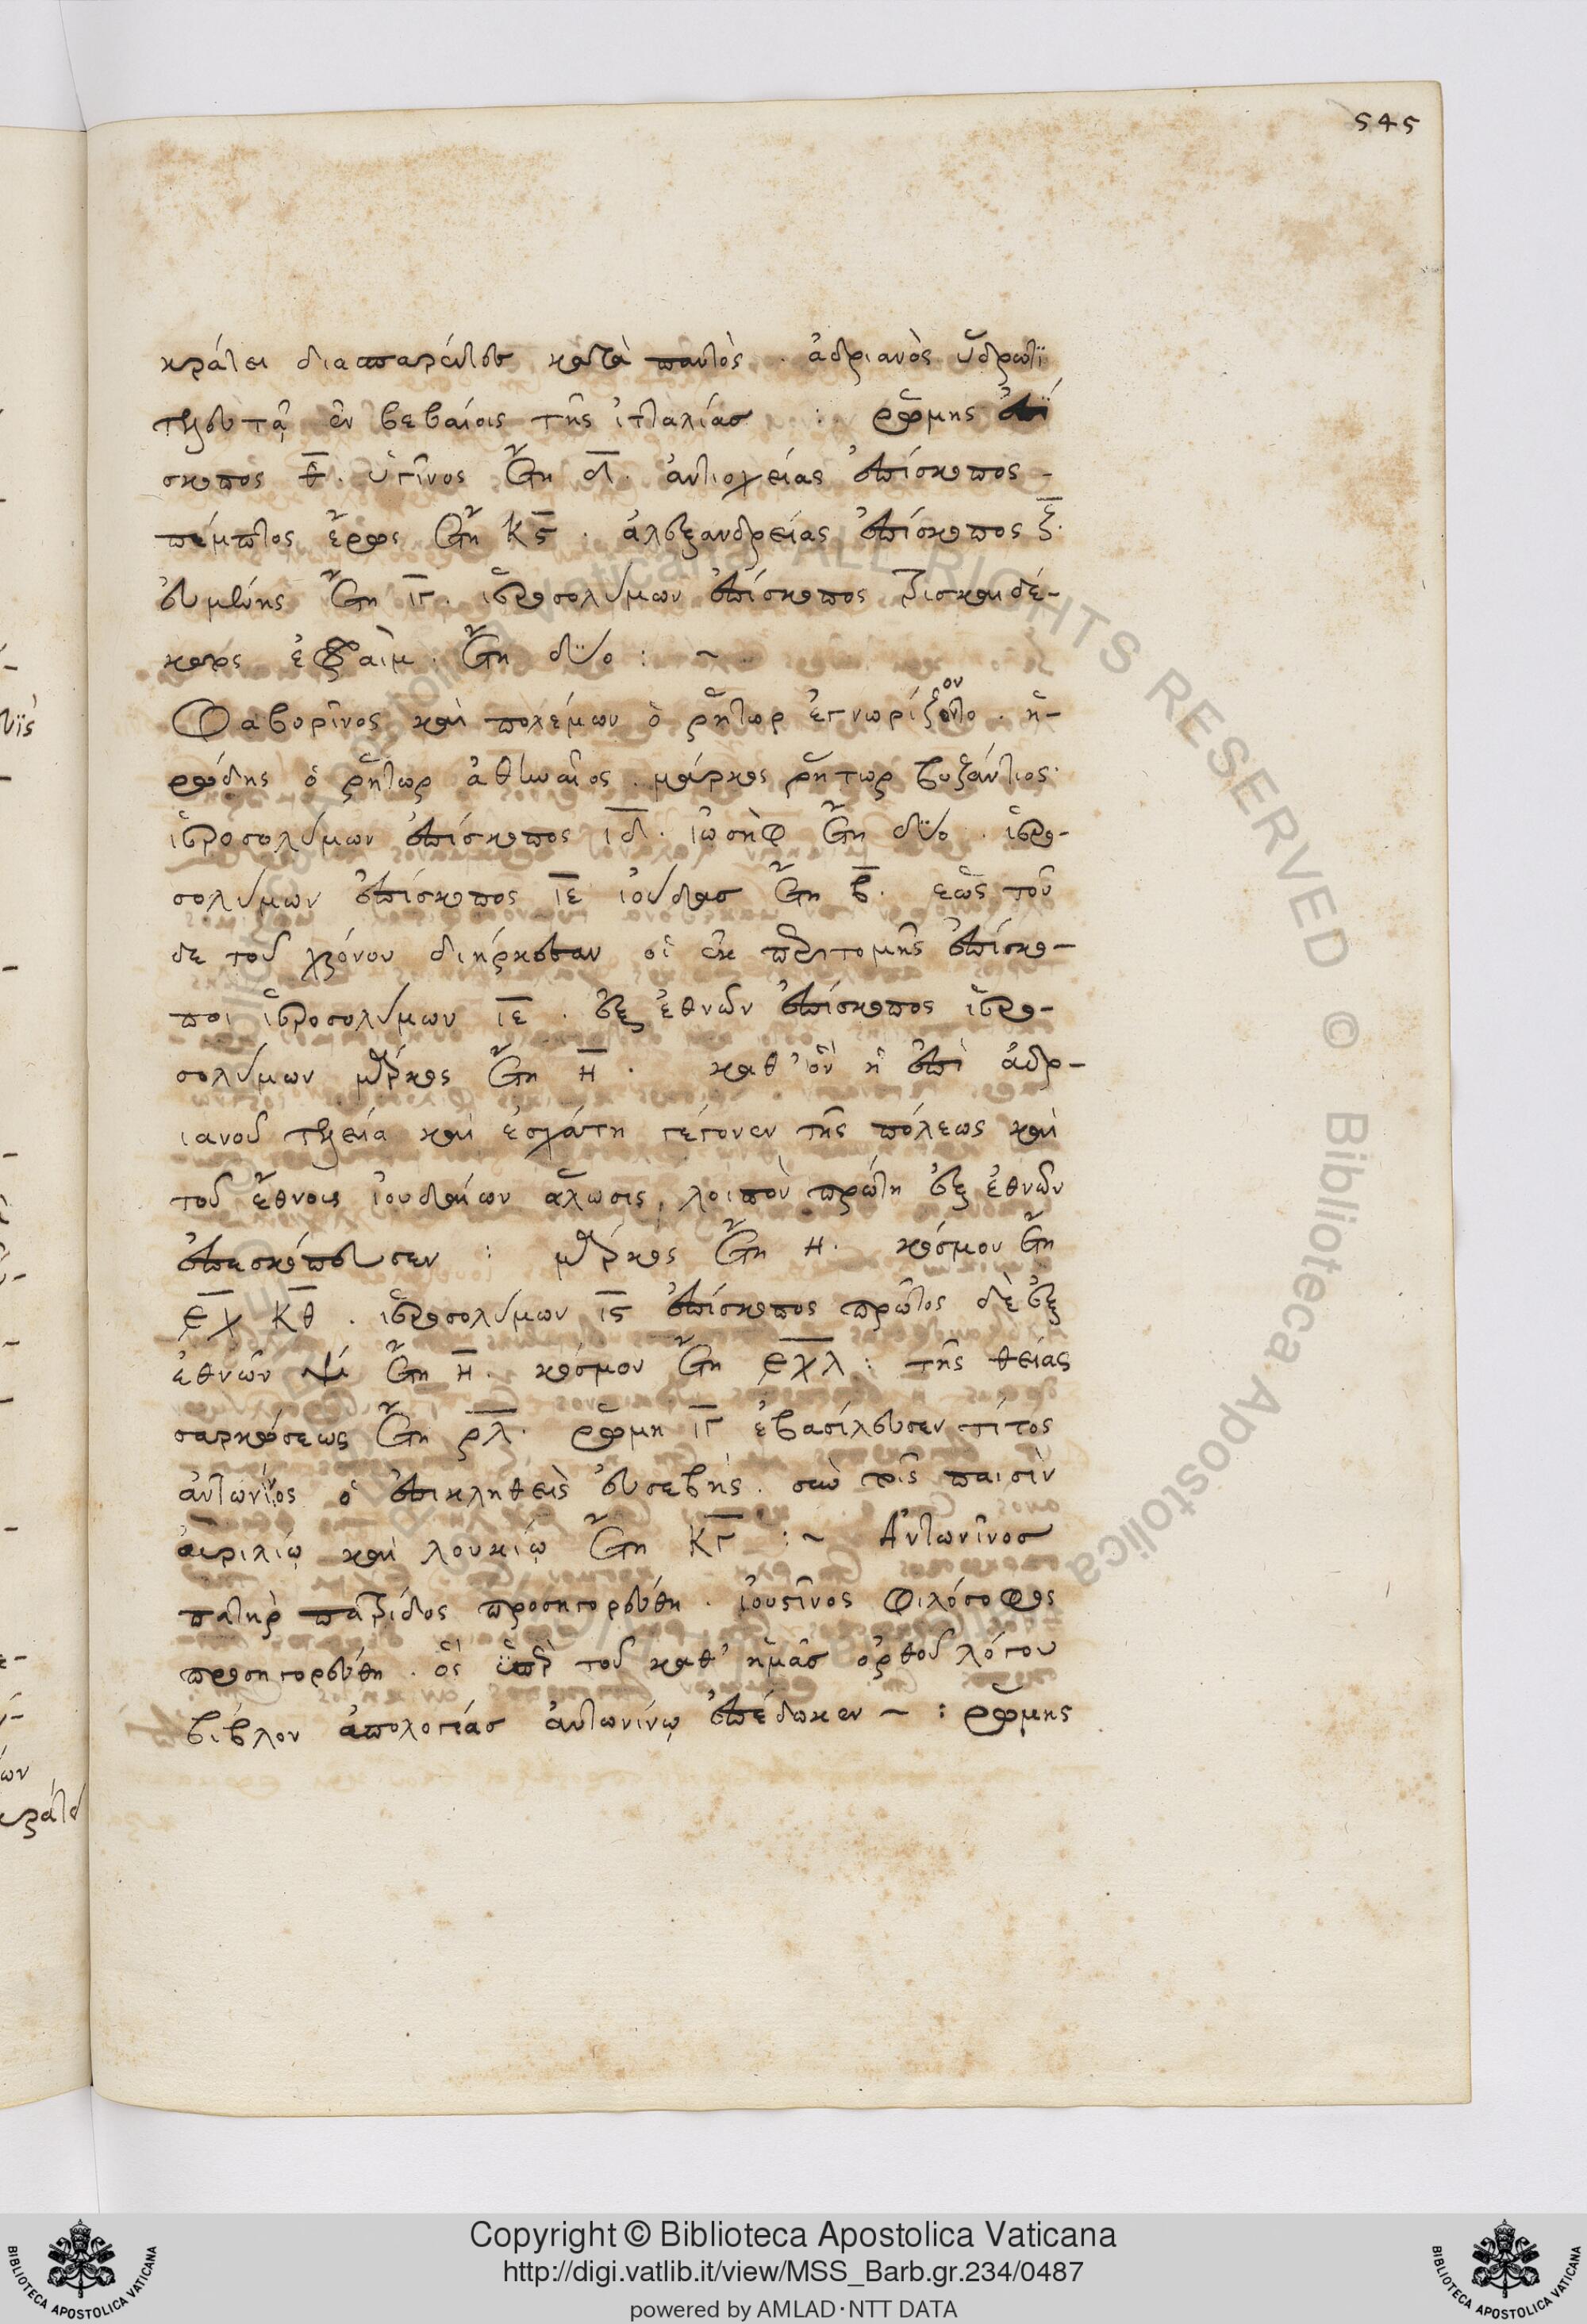 545
κράτει διαπαρέντος κατὰ παντὸς . ἀδριανὸς ὕδρωπϊ
τελευτᾷ ἐν βεβαίοις τῆς ἰταλίας : ρώμης ἐπί
σκοπος θ̅ . ὑγῖνος ἔτη δ̅ . ἀντιοχείας ἐπίσκοπος -
πέμπτος ἔρως ἔτη κϛ̅ . ἀλεξανδρείας ἐπίσκοπος ξ̅ .
εὐμένης ἔτη ιγ̅ . ἱεροσολύμων ἐπίσκοπος τρισκαιδέ-
κατος ἐφραὶμ . ἔτη δύο : ~
Φαβορῖνος καὶ πολέμων ὁ ῥήτωρ ἐγνωρίζοντο . ἡ-
ον
ρώδης ὁ ῥήτωρ ἀθηναῖος . μάρκος ῥήτωρ βυζάντιος .
ἱεροσολύμων ἐπίσκοπος ιδ̅ . ἰωσὴφ ἔτη δύο . ἱερο-
σολύμων ἐπίσκοπος ιε̅ ἰούδας ἔτη β̅ . εὥς τοῦ
δε τοῦ χρόνου διήρκεσαν οἱ ἐκ περιτομῆς ἐπίσκο-
ποι ἱεροσολύμων ιε̅ . ἐξ ἐθνῶν ἐπίσκοπος ἱερο-
σολύμων μάρκος ἔτη η̅ . καθ' ὃν ἡ ἐπὶ ἀδρ-
ιανοῦ τελεία καὶ ἐσχάτη γέγονεν τῆς πόλεως καὶ
τοῦ ἔθνους ἰουδαίων ἅλωσις , λοιπὸν πρώτη ἐξ ἐθνῶν
ἐπεσκόπευσεν : μάρκος ἔτη η . κόσμου ἔτη
͵εχ̅ κθ̅ . ἱεροσολύμων ιϛ̅ ἐπίσκοπος πρῶτος δὲ ἐξ
ἐθνῶν ἔτη η̅ . κόσμου ἔτη ͵εχλ̅ : τῆς θείας
σαρκώσεως ἔτη ρλ̅ . ρώμη ιγ̅ ἐβασίλευσεν τίτος
ἀντωνῖνος ὁ ἐπικληθεὶς εὐσεβής . σὺν τοῖς παισὶν
αὐριλίῳ καὶ λουκίῳ ἔτη κγ̅ : ~ Ἀντωνῖνος
πατὴρ πατρίδος προσηγορεύθη . ἰουστῖνος φιλόσοφος
προσηγορεύθη . ὃς ὑπὲρ τοῦ καθ' ἡμᾶς ὀρθοῦ λόγου
βίβλον ἀπολογίας ἀντωνίνῳ ἐπέδωκεν ~ : ρώμης
Copyright © Biblioteca Apostolica Vaticana
http://digi.vatlib.it/view/MSS_Barb.gr.234/0487
powered by AMLAD·NTT DATA